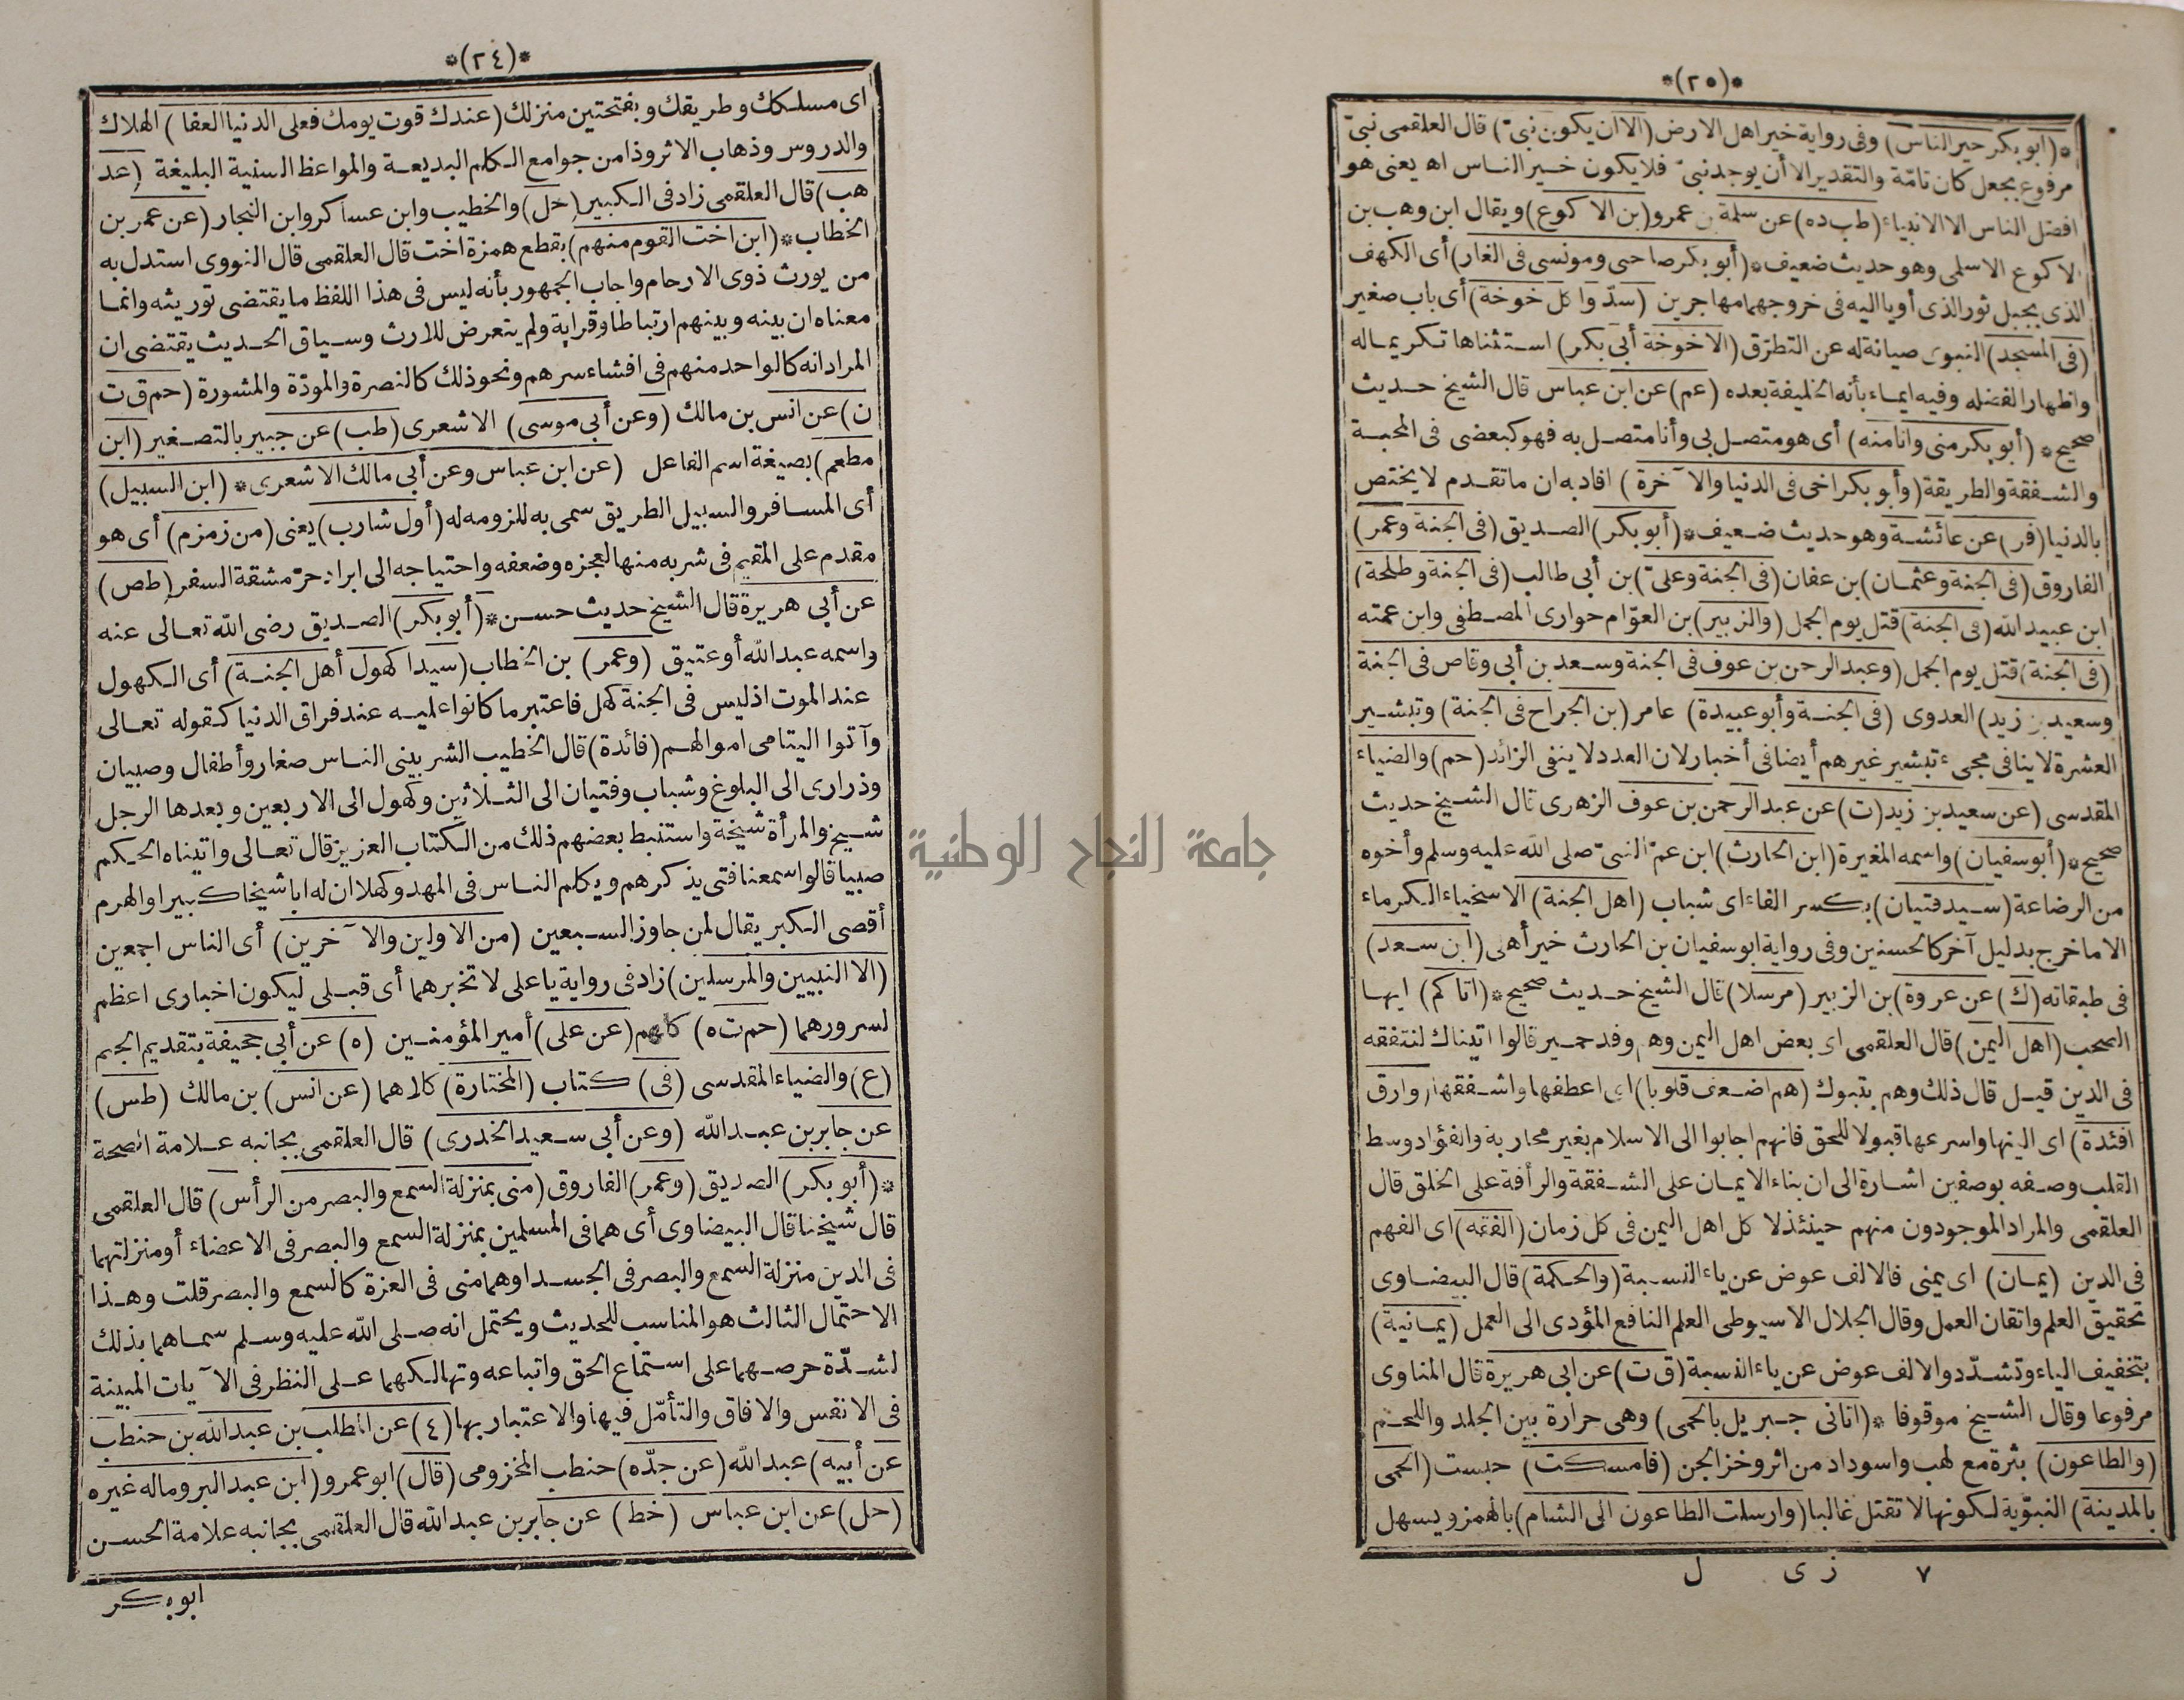 *(٢٤)*
اى مسلكك وطريقك وبفتحتين منزلك (عندك قوت يومك فعلى الدنيا العفا) الهلاك
والدروس وذهاب الاثر وذا من جوامع الكلم البديعة والمواعظ السنية البليغة (عد
هب) قال العلقمى زاد فى الكبير (حل) والخطيب وابن عساكر وابن النجار (عن عمر بن
الخطاب* (ابن اخت القوم منهم) بقطع همزة اخت قال العلقمى قال النووى استدل به
من يورث ذوى الارحام واجاب الجمهور بأنه ليس فى هذا اللفظ ما يقتضى توريثه وانما
معناه ان بينه وبينهم ارتباطا وقرابة ولم يتعرض للارث وسياق الحديث يقتضى ان
المراد انه كالواحد منهم فى افشاء سرهم ونحو ذلك كالنصرة والمودّة والمشورة (حم ق ت
ن) عن انس بن مالك (وعن أبى موسى) الاشعرى (طب) عن جبير بالتصغير (ابن
مطعم) بصيغة اسم الفاعل (عن ابن عباس وعن أبى مالك الاشعرى* (ابن السبيل)
أى المسافر والسبيل الطريق سمى به للزومه له (أول شارب) يعنى (من زمزم) أى هو
مقدم على المقيم فى شربه منها لعجزه وضعفه واحتياجه الى ابراد حرّ مشقة السفر (طص)
عن أبى هريرة قال الشيخ حديث حسن* (أبو بكر) الصديق رضى الله تعالى عنه
واسمه عبد الله أو عتيق (وعمر) بن الخطاب (سيدا كهول أهل الجنة) أى الكهول
عند الموت اذ ليس فى الجنة كهل فاعتبر ما كانوا عليه عند فراق الدنيا كقوله تعالى
وآتوا اليتامى اموالهم (فائدة) قال الخطيب الشربينى الناس صغار وأطفال وصبيان
وذرارى الى البلوغ وشباب وفتيان الى الثلاثين وكهول الى الاربعين وبعدها الرجل
شيخ والمرأة شيخة واستنبط بعضهم ذلك من الكتاب العزيز قال تعالى واتيناه الحكم
صبيا قالوا سمعنا فتى يذكرهم ويكلم الناس فى المهد وكهلا ان له ابا شيخا كبيرا والهرم
أقصى الكبر يقال لمن جاوز السبعين (من الاولين والآخرين) أى الناس اجمعين
(الا النبيين والمرسلين) زاد فى رواية يا على لا تخبرهما أى قبلى ليكون اخبارى اعظم
لسرورهما (حم ت ه) كلهم (عن على) أمير المؤمنين (ه) عن أبى جحيفة بتقديم الجيم
(ع) والضياء المقدسى (فى) كتاب (المختارة) كلاهما (عن انس) بن مالك (طس)
عن جابر بن عبد الله (وعن أبى سعيد الخدرى) قال العلقمى بجانبه علامة الصحة
* (أبو بكر) الصديق (وعمر) الفاروق (منى بمنزلة السمع والبصر من الرأس) قال العلقمى
قال شيخنا قال البيضاوى أى هما فى المسلمين بمنزلة السمع والبصر فى الاعضاء أو منزلتهما
فى الدين منزلة السمع والبصر فى الجسد او هما منى فى العزة كالسمع والبصر قلت وهذا
الاحتمال الثالث هو المناسب للحديث ويحتمل انه صلى الله عليه وسلم سماهما بذلك
لشدّة حرصهما على استماع الحق واتباعه وتهالكهما على النظر فى الآيات المبينة
فى الانفس والافاق والتأمّل فيها والاعتبار بها (٤) عن المطلب بن عبد الله بن حنطب
عن أبيه) عبد الله (عن جدّه) حنطب المخزومى (قال) ابو عمرو (ابن عبد البر وماله غيره
(حل) عن ابن عباس (خط) عن جابر بن عبد الله قال العلقمى بجانبه علامة الحسن
ابو بكر
*(٢٥)*
* (ابو بكر خير الناس) وفى رواية خير اهل الارض (الا ان يكون نبىّ) قال العلقمى نبىّ
مرفوع بجعل كان تامّة والتقدير الا أن يوجد نبىّ فلا يكون خير الناس اه يعنى هو
افضل الناس الا الانبياء (طب ده) عن سلمة بن عمرو (بن الاكوع) ويقال ابن وهب بن
الاكوع الاسلمى وهو حديث ضعيف* (أبو بكر صاحبى ومونسى فى الغار) أى الكهف
الذى بجبل ثور الذى أويا اليه فى خروجهما مهاجرين (سدّوا كل خوخة) أى باب صغير
(فى المسجد) النبوى صيانة له عن التطرّق (الا خوخة أبى بكر) استثناها تكريما له
واظهارا لفضله وفيه ايماء بأنه الخليفة بعده (عم) عن ابن عباس قال الشيخ حديث
صحيح* (أبو بكر منى وانا منه) أى هو متصل بى وأنا متصل به فهو كبعضى فى المحبة
والشفقة والطريقة (وأبو بكر اخى فى الدنيا والآخرة) افاد به ان ما تقدم لا يختص
بالدنيا (فر) عن عائشة وهو حديث ضعيف* (أبو بكر) الصديق (فى الجنة وعمر)
الفاروق (فى الجنة وعثمان) بن عفان (فى الجنة وعلىّ) بن أبى طالب (فى الجنة وطلحة)
ابن عبيد الله (فى الجنة) قتل يوم الجمل (والزبير) بن العوّام حوارى المصطفى وابن عمته
(فى الجنة) قتل يوم الجمل (وعبد الرحمن بن عوف فى الجنة وسعد بن أبى وقاص فى الجنة
وسعيد بن زيد) العدوى (فى الجنة وأبو عبيدة) عامر (بن الجراح فى الجنة) وتبشير
العشرة لا ينافى مجىء تبشير غيرهم أيضا فى أخبار لان العدد لا ينفى الزائد (حم) والضياء
المقدسى (عن سعيد بن زيد (ت) عن عبد الرحمن بن عوف الزهرى قال الشيخ حديث
صحيح* (أبو سفيان) واسمه المغيرة (ابن الحارث) ابن عمّ النبىّ صلى الله عليه وسلم وأخوه
من الرضاعة (سيد فتيان) بكسر الفاء اى شباب (اهل الجنة) الاسخياء الكرماء
الا ما خرج بدليل آخر كالحسنين وفى رواية ابو سفيان بن الحارث خير أهلى (ابن سعد)
فى طبقاته (ك) عن عروة) بن الزبير (مرسلا) قال الشيخ حديث صحيح* (اتاكم) ايها
الصحب (اهل اليمن) قال العلقمى اى بعض اهل اليمن وهم وفد حمير قالوا اتيناك لنتفقه
فى الدين قيل قال ذلك وهم بتبوك (هم اضعف قلوبا) اى اعطفها واشفقها (وارق
افئدة) اى الينها واسرعها قبولا للحق فانهم اجابوا الى الاسلام بغير محاربة والفؤاد وسط
القلب وصفه بوصفين اشارة الى ان بناء الايمان على الشفقة والرأفة على الخلق قال
العلقمى والمراد الموجودون منهم حينئذ لا كل اهل اليمن فى كل زمان (الفقه) اى الفهم
فى الدين (يمان) اى يمنى فالالف عوض عن ياء النسبة (والحكمة) قال البيضاوى
تحقيق العلم واتقان العمل وقال الجلال الاسيوطى العلم النافع المؤدى الى العمل (يمانية)
بتخفيف الياء وتشدّد والالف عوض عن ياء النسبة (ق ت) عن ابى هريرة قال المناوى
مرفوعا وقال الشيخ موقوفا* (اتانى جبريل بالحمى) وهى حرارة بين الجلد واللحم
(والطاعون) بثرة مع لهب واسوداد من اثر وخز الجن (فامسكت) حبست (الحمى
بالمدينة) النبوّية لكونها لا تقتل غالبا (وارسلت الطاعون الى الشام) بالهمز ويسهل
٧ زى ل
جامعة النجاح الوطنية